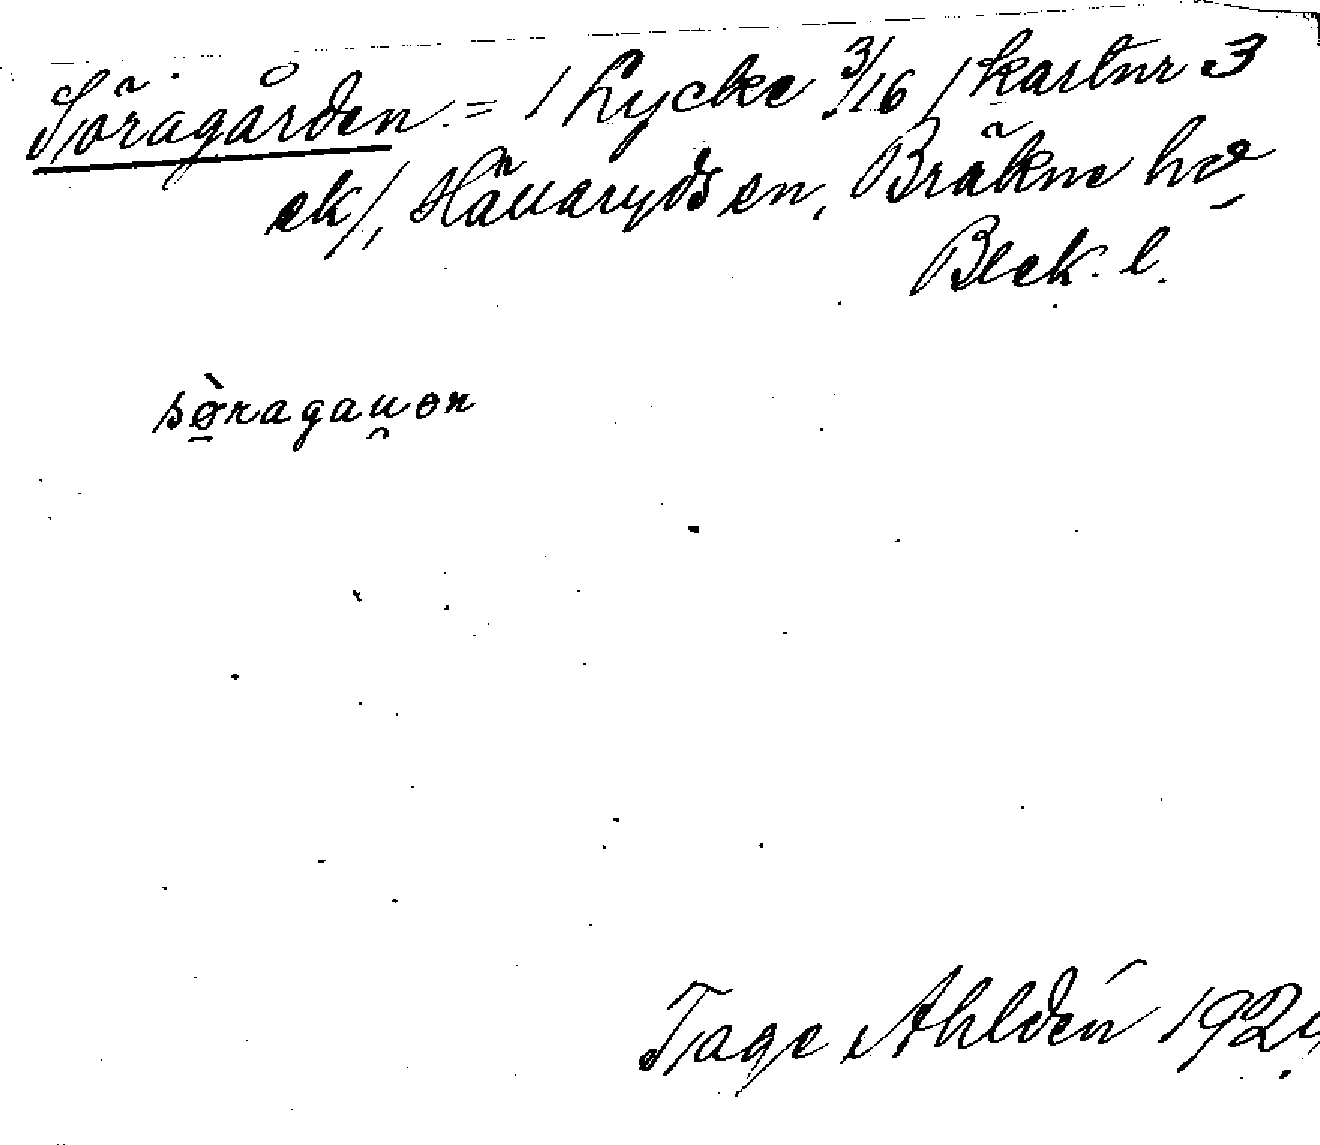 Söragården = / Lycke 3/16 / kartnr 3
ek /, Hällaryds sn, Bräkne hd
Blek. l.
söragauən
Tage Ahldén 192